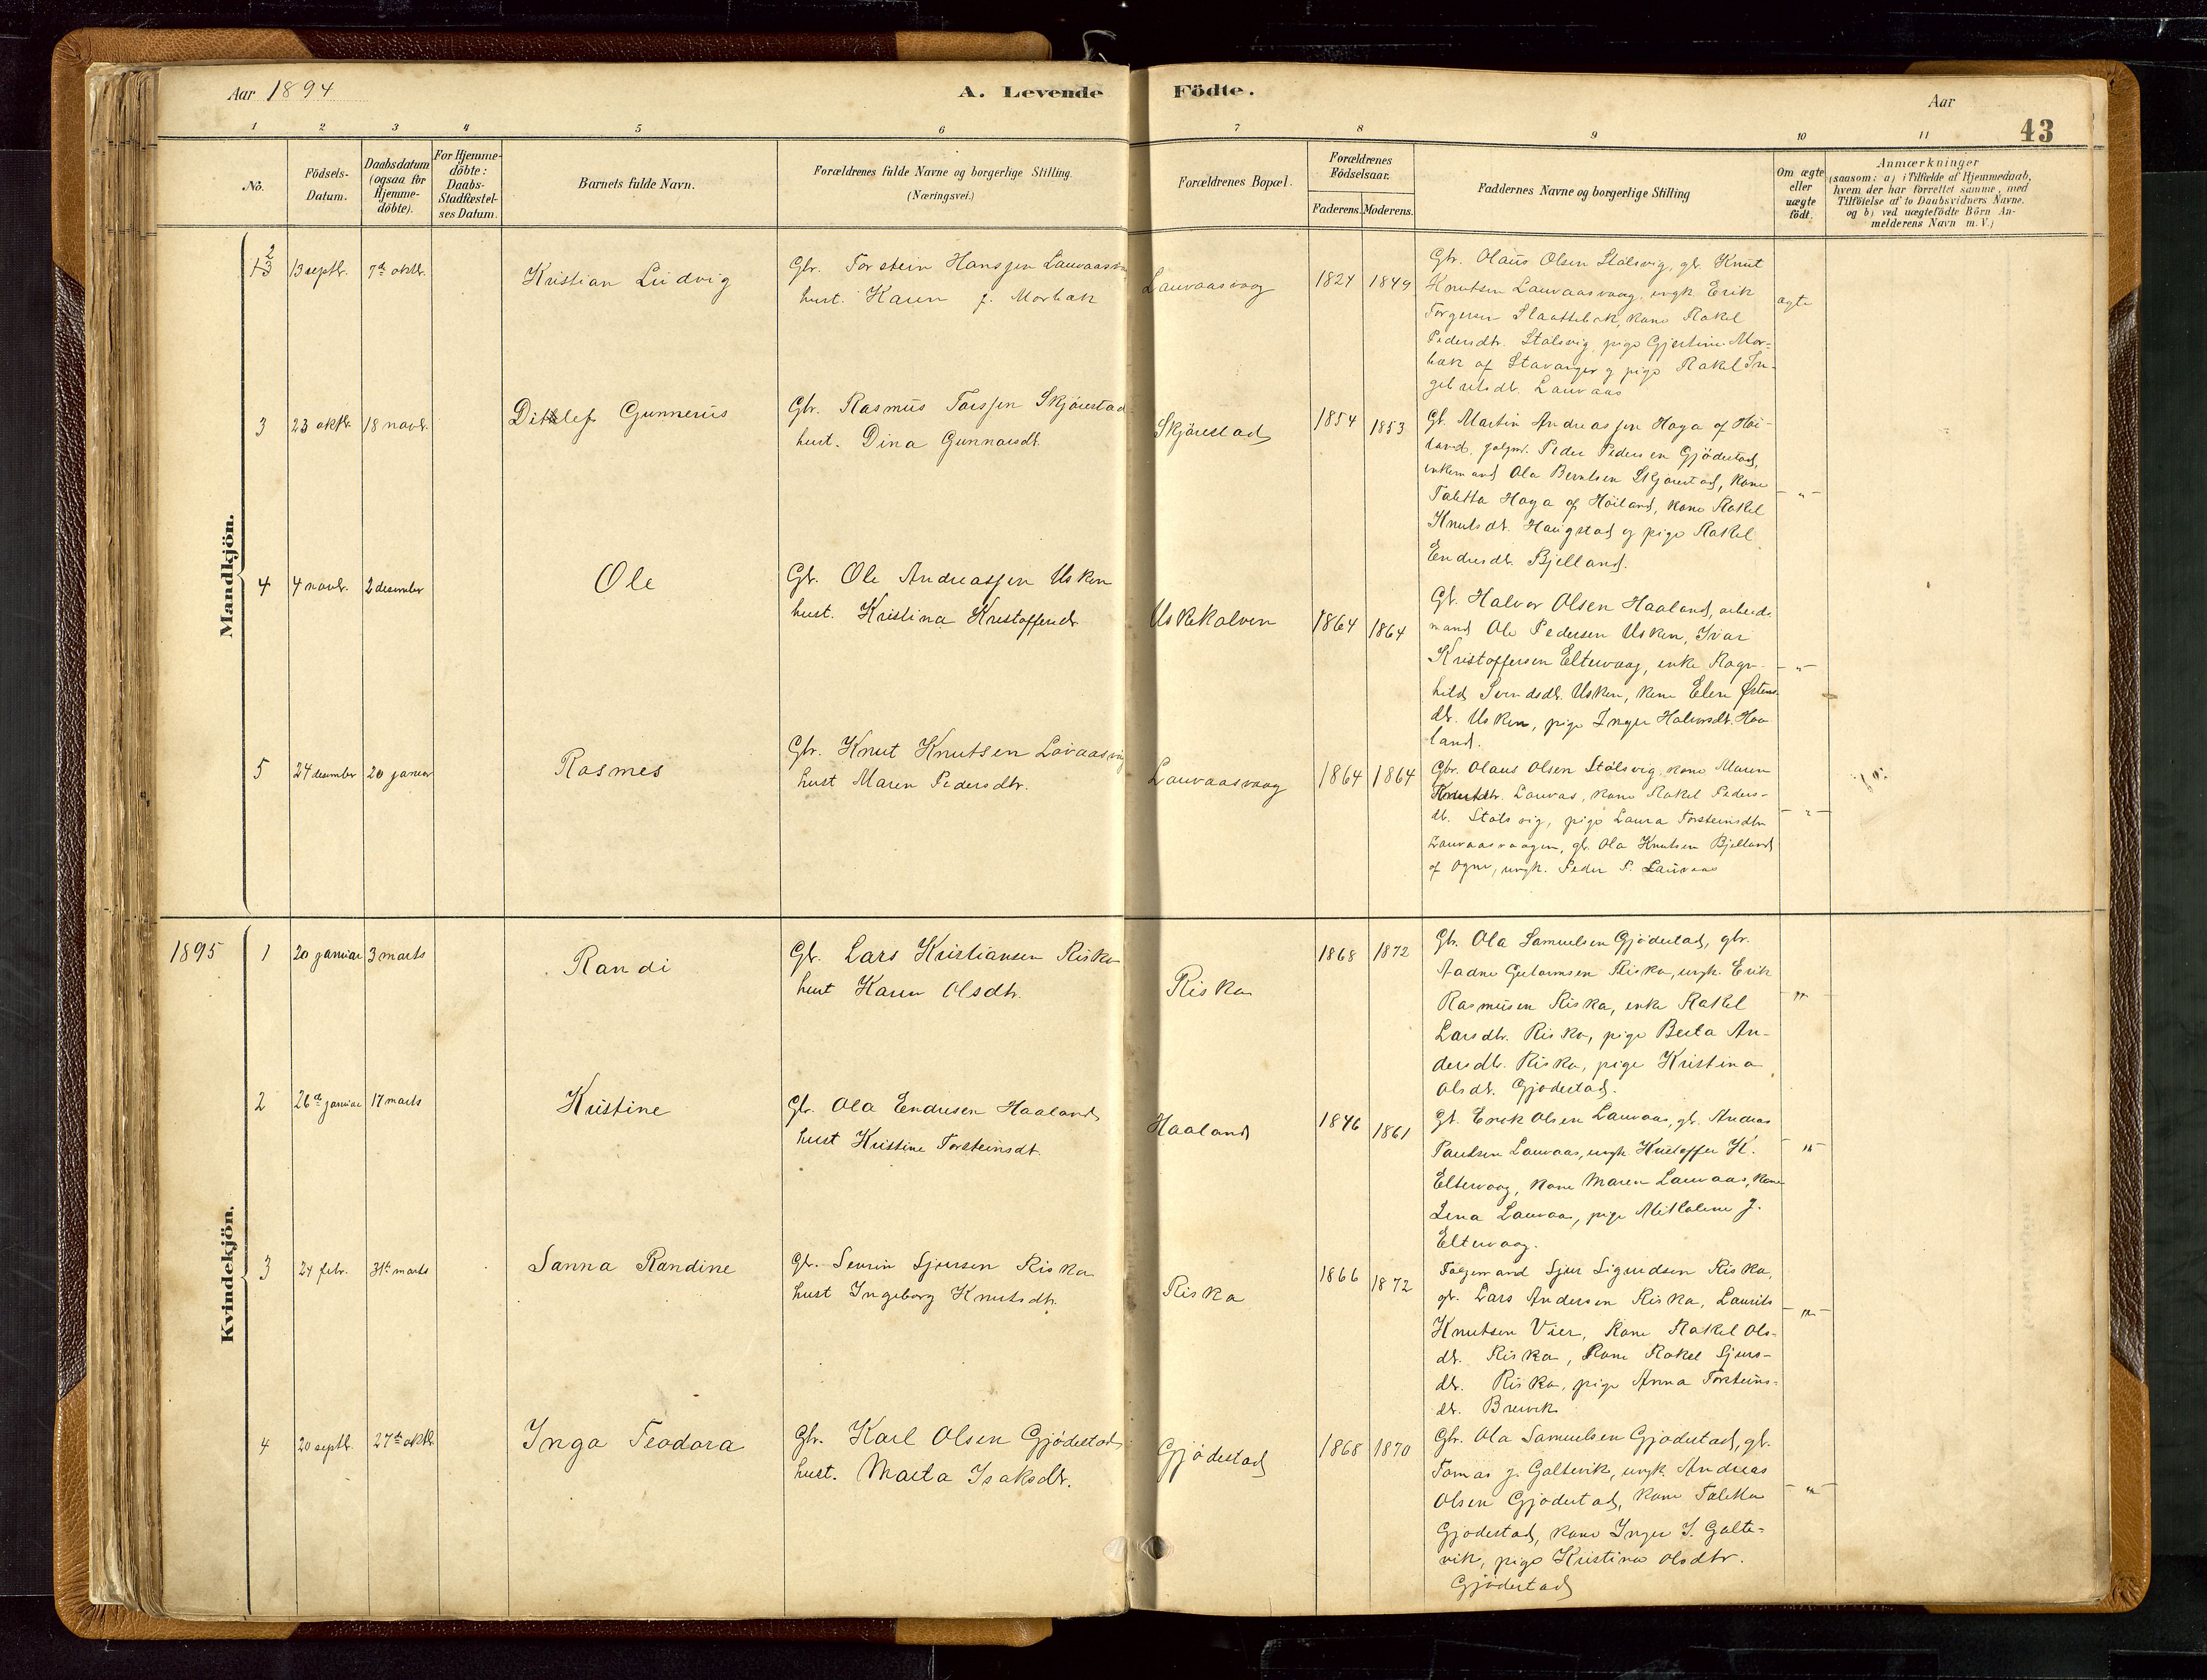 Aar 1894
A. Levende
Födte.
Aar
43
1
2
3
4
5
6
7
8
9
10
11
No.
Födsels-
Datum.
Daabsdatum
(ogsaa för
Hjemme-
döbte).
For Hjemme-
döbte:
Daabs-
Stadfæstel-
ses Datum.
Barnets fulde Navn.
Forældrenes fulde Navne og borgerlige Stilling.
(Næringsvei.)
Forældrenes Bopæl.
Forældrenes
Födselsaar.
Faderens.
Moderens.
Faddernes Navne og borgerlige Stilling
Om ægte
eller
uægte
født.
Anmærkninger
(saasom: a) i Tilfælde af Hjemmedaab,
hvem der har forrettet samme, med
Tilföielse af to Daabsvidners Navne.
og b) ved uægtefödte Börn An-
melderens Navn m. V.)
Mandkjön.
2
13 septbr.
7de oktbr.
Kristian Ludvig
Gbr. Torstein Hanssen
hust. Karen f. Morbak
Lauvaasvaag
1824
1849
Gbr. Olaus Olsen Stölsvig, gb. Knut
Knutsen Lauvaasvaag, ungk. Erik
Torgersen Slaattebak, kone Rakel
Pedersdtr. Stölsvig, pige Gjertine Mor-
bak af Stavanger og pige Rakel In-
gebretsdt. Lauvaas
ægte
3
23 oktbr.
18 novbr.
Ditlef Gunnerius
Gbr. Rasmus Larssen Skjørestad
hust. Dina Gunnarsdt.
Skjørestad
1854
1853
Gb. Martin Andreassen Høga af Høi-
land, Peder Pedersen Gjödestad,
enkemand Ola Berntsen Skjørestad, kone
Taletta Høga af Høiland, kone Rakel
Knutsdt. Haugstad og pige Rakel
Endresdt. Bjelland.
- " -
4
4 novbr.
2 desember
Ole
Gb. Ole Andreassen Usken
hust. Kristina Kristoffersdt.
Uskekalven
1864
1864
Gb. Halvor Olsen Haaland, arbeids
mand Ole Pedersen Usken, Ivar
Kristoffersen Eltervaag, enke Ragn-
hild Svendsdt. Usken, kone Elen Østens
dt. Usken, pige Inger Halvorsdt. Haa
land.
- " -
5
24 desember
20 januar
Rasmes
Gbr. Knut Knutsen
hust Maren Pedersdtr.
Lauvaasvaag
1864
1864
Gbr. Olaus Olsen Stölsvig, kone Maren
Lauvas, kone Rakel Peders-
dt. Stölsvig, pige Laura Torsteinsdtr
Lauvaasvaagen, gb. Ola Knutsen Bjelland
af Ogne, ungk. Peder P. Lauvaas
- " -
1895
Kvindekjön.
1
20 januar
3 marts
Randi
Gb. Lars Kristiansen Riska
hust Karen Olsdtr.
Riska
1868
1872
Gb. Ola Samuelsen Gjödestad, gbr.
Aadne Gutormsen Riska, ungk. Erik
Rasmusen Riska, enke Rakel
Larsdtr. Riska, pige Berta An-
dersdt. Riska, pige Kristina
Olsdt. Gjödestad.
- " -
2
26de januar
17 marts
Kristine
Gb. Ola Endresen Haaland
hust Kristine Torsteinsdt.
Haaland
1846
1861
Gb. Erik Olsen Lauvaas, gb. Andreas
Paulsen Lauvaas, ungk. Kristoffer K.
Eltervaag, kone Maren Lauvaas, kone
Lena Lauvaas, pige J.
Eltervaag.
"-
3
24 febr.
31te marts
Sanna Randine
Gb. Sevrin Sjursen Riska
hust Ingeborg Knutsdtr.
Riska
1866
1872
Følgemand Sjur Sigurdsen Riska,
gb. Lars Andersen Riska, Laurits
Knutsen Vier, kone Rakel Ols-
dt. Riska, kone Rakel Sjurs-
dt. Riska, pige Anna Torsteins-
dt. Brevik
- " -
4
20 septbr.
27de oktbr.
Inga Teodora
Gbr. Karl Olsen Gjödestad
hust. Marta Isaksdtr.
Gjödestad
1868
1870
Gbr. Ola Samuelsen Gjödestad, gb.
Tomas J. Galtevik, ungk. Andreas
Olsen Gjödestad, kone Taletta
Gjödestad, kone Inger J. Galte-
vik, pige Kristina Olsdtr.
Gjödestad
- " -